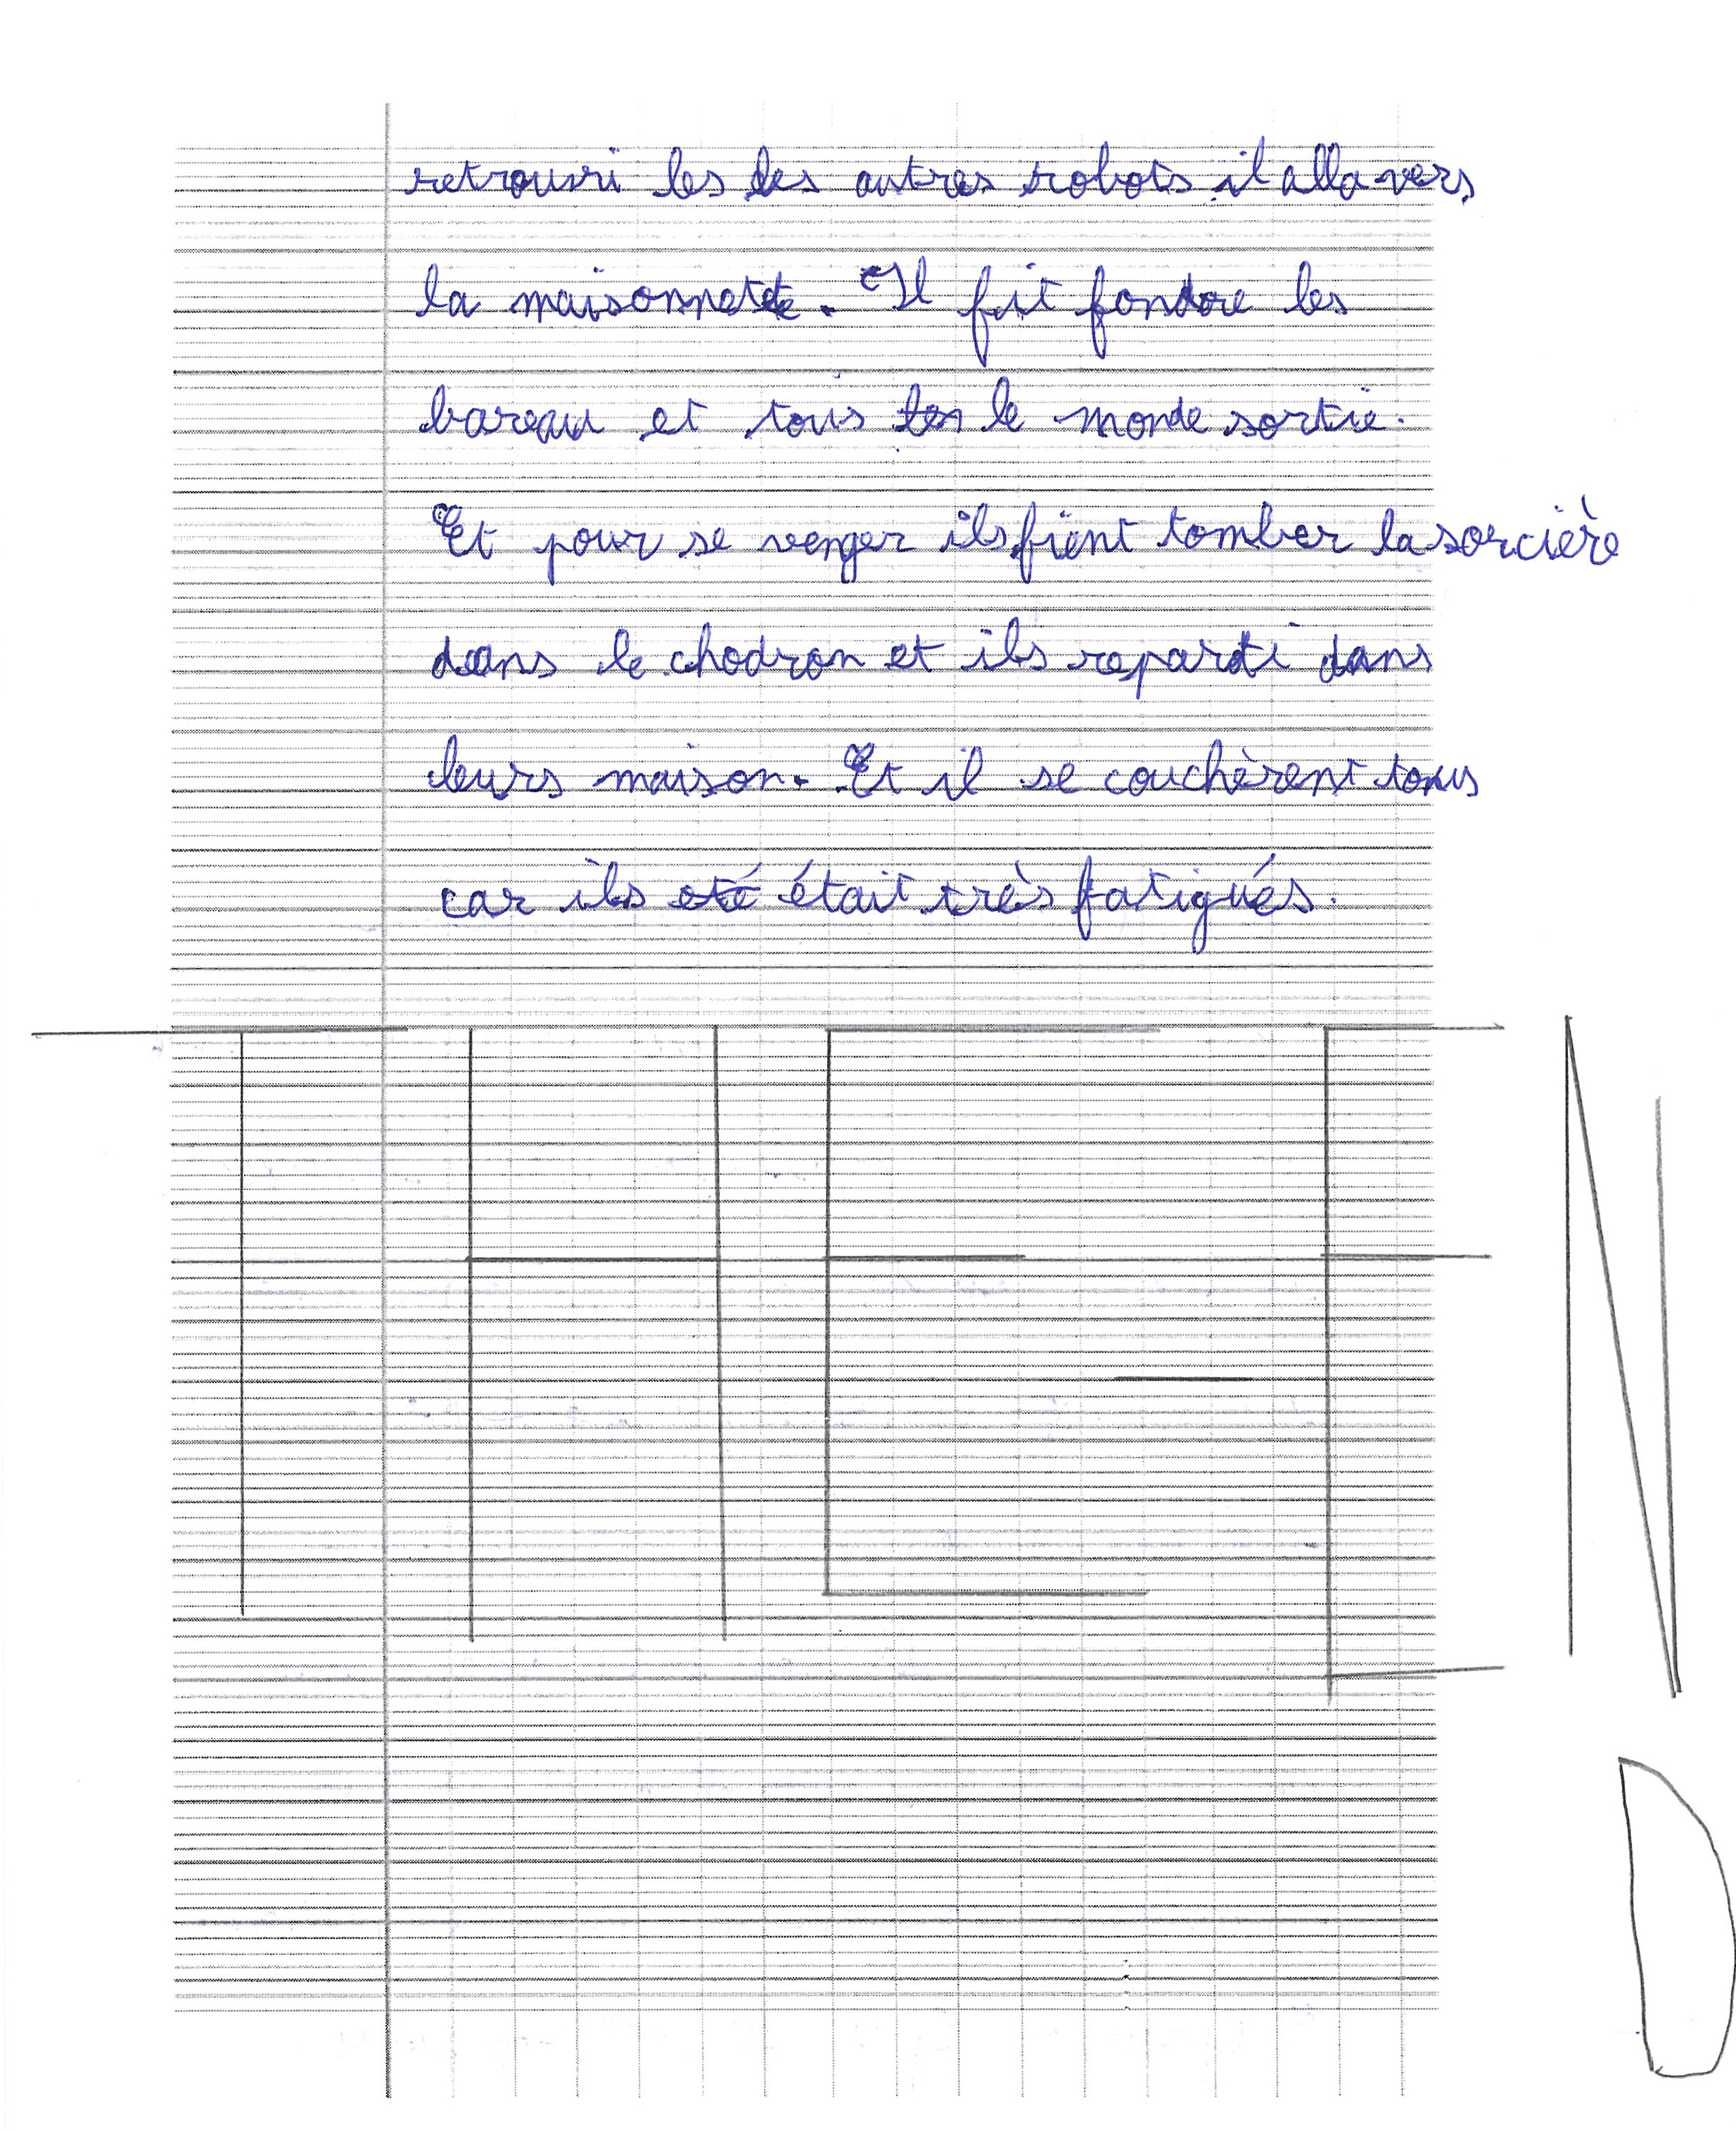 retrouvri les les autres robots il alla vers
la maisonnette. Il fit fondre les
bareau et tous les le monde sortie.
Et pour se venger ils firent tomber la sorcière
dans le chodron et ils reparti dans
leurs maison. Et il se couchèrent tous
car ils eté était très fatigués.
THE-EN
D